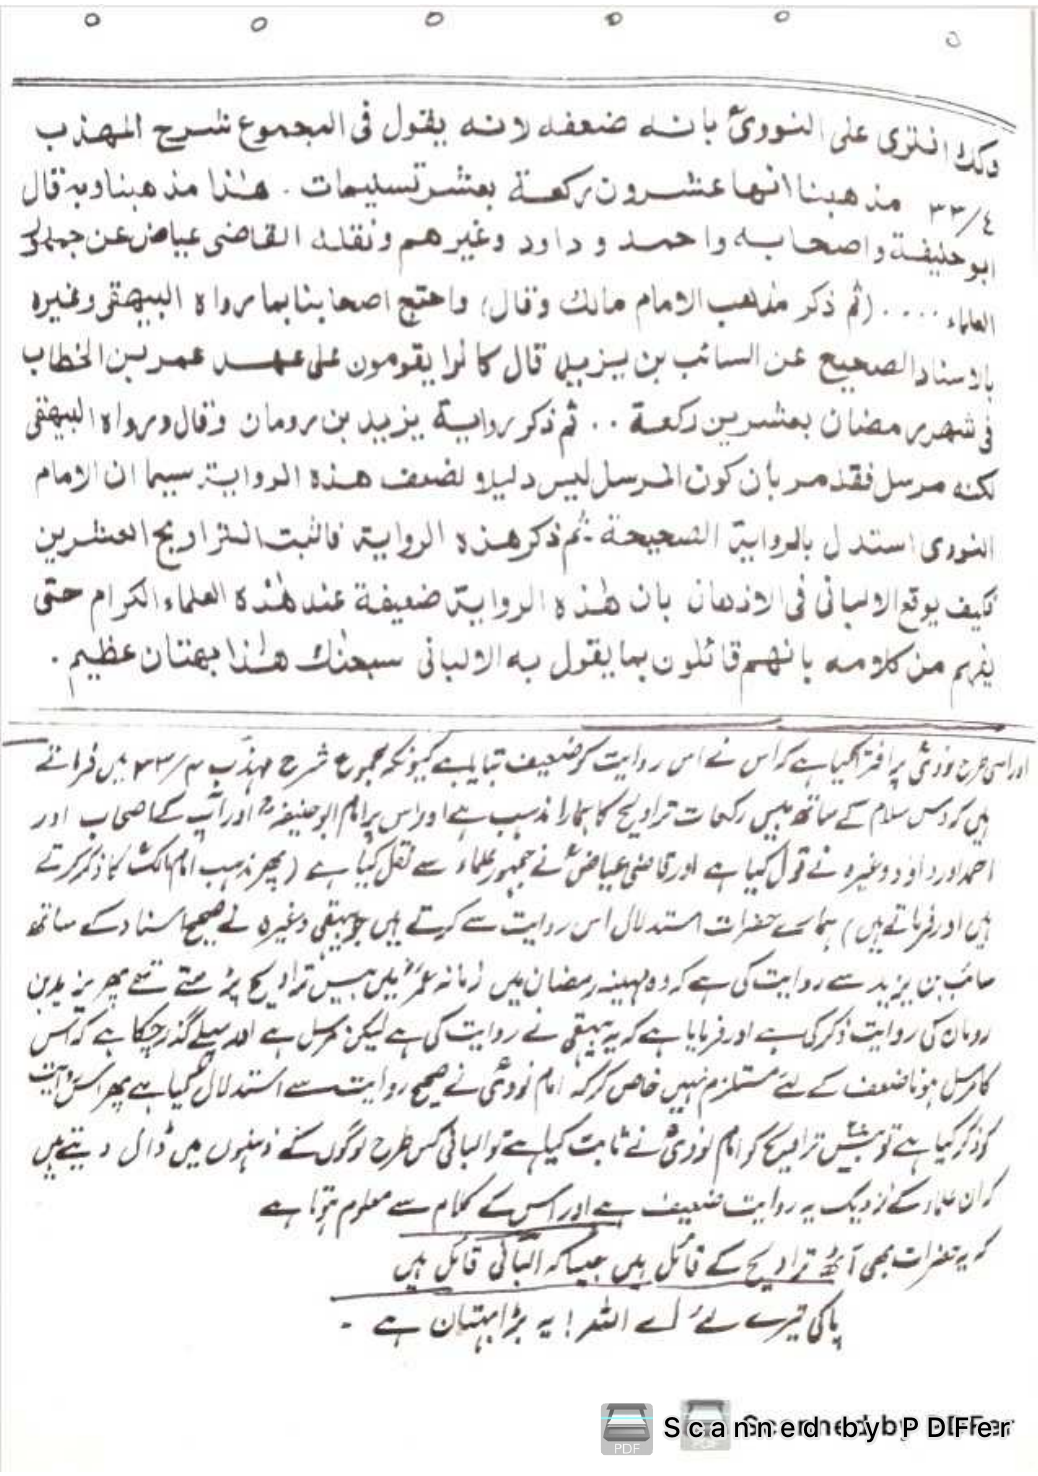 وكذا افترى على النوويؒ بانه ضعفه لانه يقول فى المجموع شرح المهذب
٣٣/٤ مذهبنا انها عشرون ركعة بعشر تسليمات . هٰذا مذهبنا وبه قال
ابو حنيفة واصحابه واحمد و داود وغيرهم ونقله القاضى عياض عن جمهور
العلماء .... (ثم ذكر مذهب الامام مالك وقال) واحتج اصحابنا بما رواه البيهقى وغيره
بالاسناد الصحيح عن السائب بن يزيد قال كانوا يقومون على عهد عمر بن الخطاب
فى شهر رمضان بعشرين ركعة .. ثم ذكر رواية يزيد بن رومان وقال ورواه البيهقى
لكنه مرسل فقد مر بان كون المرسل ليس دليلا لضعف هذه الرواية سيما ان الامام
النووى استدل بالرواية الصحيحة ـ ثم ذكر هذه الرواية فاثبت التراويح العشرين
فكيف يوقع الالبانى فى الاذهان بان هٰذه الرواية ضعيفة عند هٰذه العلماء الكرام حتى
يفهم من كلامه بانهم قائلون بما يقول به الالبانى سبحٰنك هٰذا بهتان عظيم .
اور اسی طرح نوویؒ پر افترا کیا ہے کہ اس نے اس روایت کو ضعیف بتایا ہے کیونکہ مجموع شرح مہذب ۳۳/۴ میں فرماتے
ہیں کہ دس سلام کے ساتھ بیس رکعات تراویح کا ہمارا مذہب ہے اور اس پر امام ابو حنیفہؒ اور آپ کے اصحاب اور
احمد اور داؤد وغیرہ نے قول کیا ہے اور قاضی عیاضؒ نے جمہور علماء سے نقل کیا ہے (پھر مذہب امام مالکؒ کا ذکر کرتے
ہیں اور فرماتے ہیں) ہمارے حضرات استدلال اس روایت سے کرتے ہیں جو بیہقی وغیرہ نے صحیح اسناد کے ساتھ
سائب بن یزید سے روایت کی ہے کہ وہ مہینہ رمضان میں زمانہ عمرؓ میں بیس تراویح پڑھتے تھے پھر یزید بن
رومان کی روایت ذکر کی ہے اور فرمایا ہے کہ یہ بیہقی نے روایت کی ہے لیکن مرسل ہے اور پہلے گذر چکا ہے کہ اس
کا مرسل ہونا ضعف کے لئے مستلزم نہیں خاص کر کہ امام نوویؒ نے صحیح روایت سے استدلال کیا ہے پھر اس روایت
کو ذکر کیا ہے تو بیس تراویح کو امام نوویؒ نے ثابت کیا ہے تو البانی کس طرح لوگوں کے ذہنوں میں ڈال دیتے ہیں
کہ ان علماء کے نزدیک یہ روایت ضعیف ہے اور اس کے کلام سے معلوم ہوتا ہے
کہ یہ حضرات بھی آٹھ تراویح کے قائل ہیں جیسا کہ البانی قائل ہیں
پاکی تیرے لئے اے اللہ ! یہ بڑا بہتان ہے ۔
Scanned by PDFer